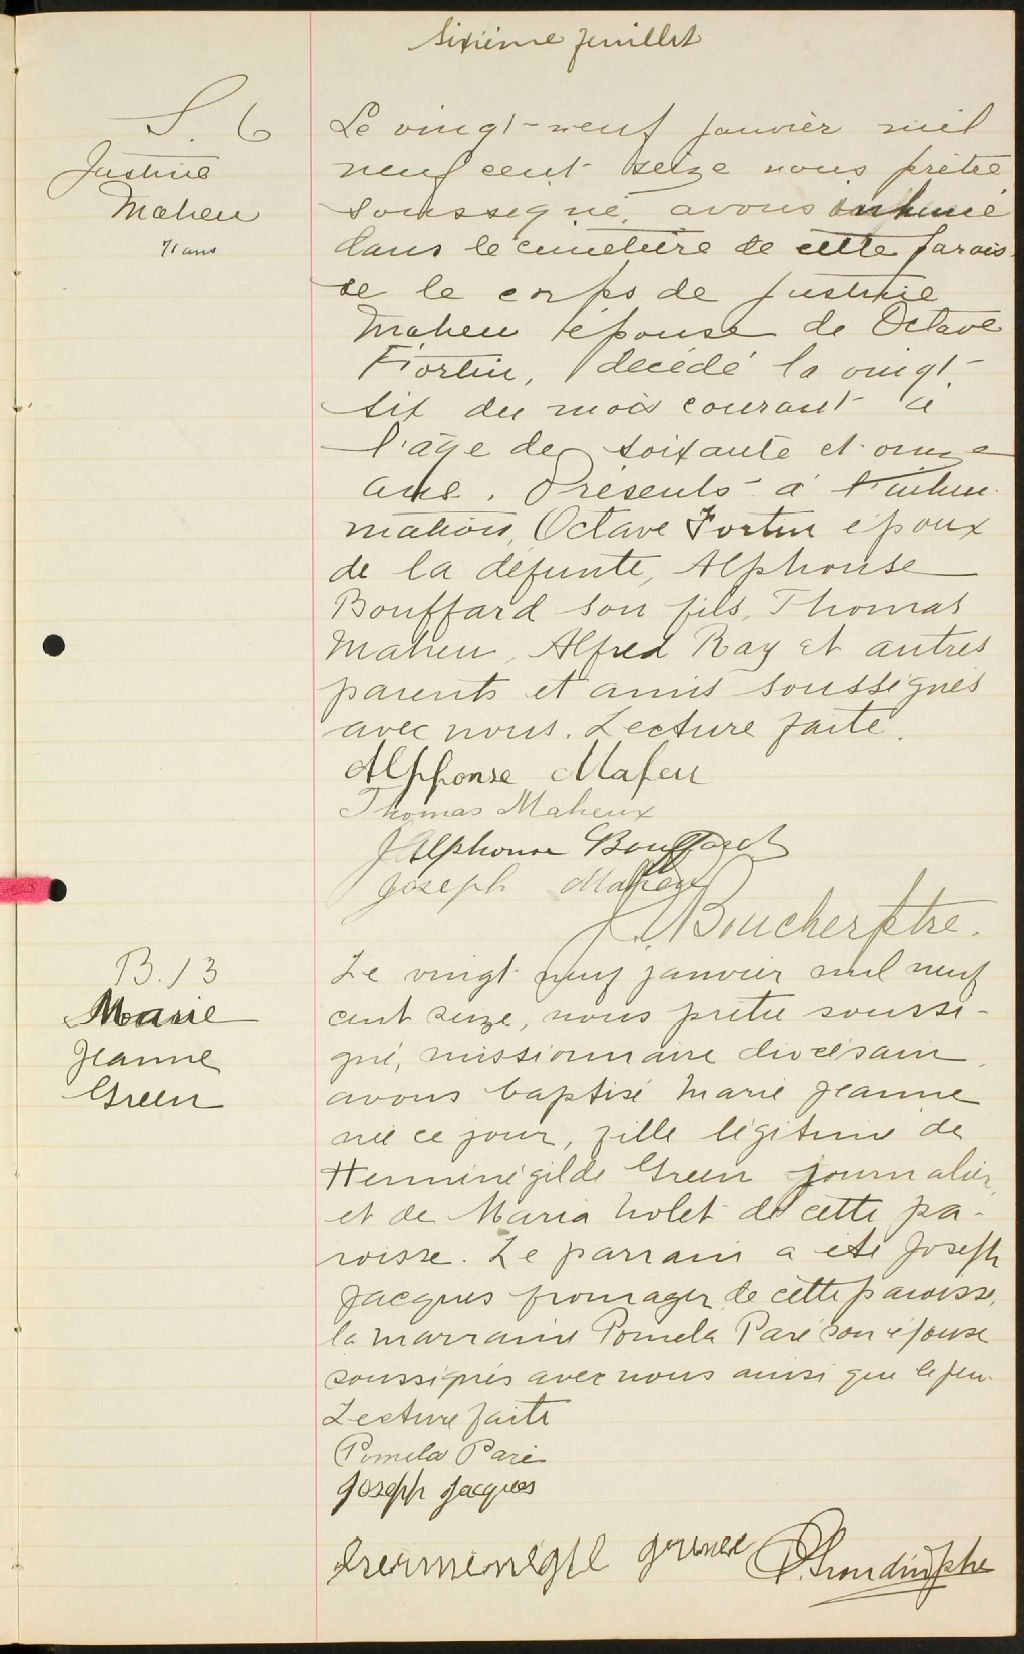 Sixième feuillet
S. 6
Justine
Maheu
71 ans
Le vingt-neuf janvier mil
neuf cent seize nous prêtre
soussigné, avons inhumé
dans le cimetière de cette parois-
se le corps de Justine
Maheu épouse de Octave
Fortin, décédé la vingt-
six du mois courant à
l'âge de soixante et onze
ans. Présents à l'inhu-
mation, Octave Fortin époux
de la défunte, Alphonse
Bouffard son fils, Thomas
Maheu, Alfred Ray et autres
parents et amis soussignés
avec nous. Lecture faite.
Alphonse Maheu
Thomas Maheux
J Alphonse Bouffard
Joseph Maheu
J. Boucher ptre.
B. 13
Marie
Jeanne
Green
Le vingt neuf janvier mil neuf
cent seize, nous prêtre soussi-
gné, missionnaire diocésain,
avons baptisé Marie Jeanne
née ce jour, fille légitime de
Herminégilde Green journalier,
et de Maria Nolet de cette pa-
roisse. Le parrain a été Joseph
Jacques fromager de cette paroisse,
la marraine Pomela Paré son épouse
soussignés avec nous ainsi que le père.
Lecture faite
Pomela Paré
Joseph Jacques